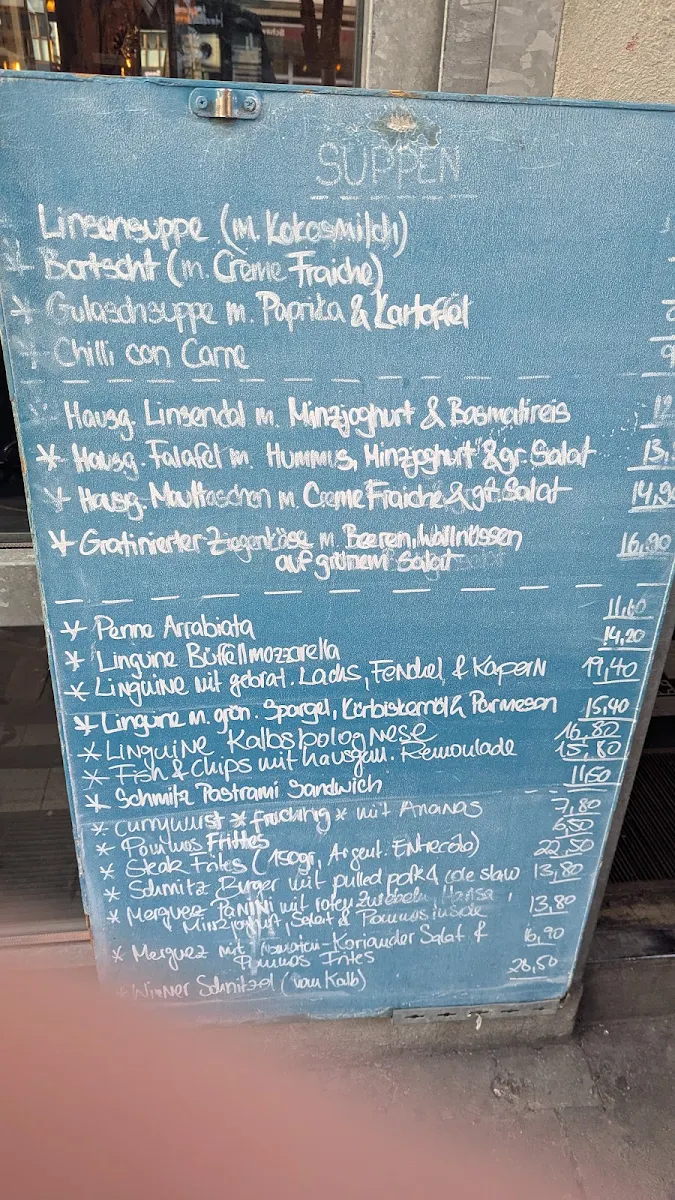 SUPPEN
Linsensuppe (m. Kokosmilch)
* Bortscht (m. Creme Fraiche)
* Gulaschsuppe m. Paprika & Kartoffel
* Chilli con Carne
Hausg. Linsendal m. Minzjoghurt & Basmatireis 12
* Hausg. Falafel m. Hummus, Minzjoghurt & gr. Salat 13,
* Hausg. Maultaschen m. Creme Fraiche & gr. Salat 14,90
* Gratinierter Ziegenkäse m. Beeren, Wallnüssen 16,90
auf grünem Salat
* Penne Arrabiata 11,60
* Linguine Büffelmozzarella 14,20
* Linguine mit gebrat. Lachs, Fenchel & Kapern 19,40
* Linguine m. grün. Spargel, Kürbiskernöl & Parmesan 15,40
* Linguine Kalbsbolognese 16,80
* Fish & Chips mit hausgem. Remoulade 15,80
* Schmitz Pastrami Sandwich 11,50
* Currywurst * fruchtig * mit Ananas 7,80
* Pommes Frittes
* Steak Frites (150gr, Argent. Entrecote) 22,50
* Schmitz Burger mit pulled pork & cole slaw 13,80
* Merguez Panini mit roten Zwiebeln, Harisa, 13,80
Minzjoghurt, Salat & Pommes inside
* Merguez mit Koriander Salat & 16,90
Pommes Frites
* Wiener Schnitzel (vom Kalb) 26,50